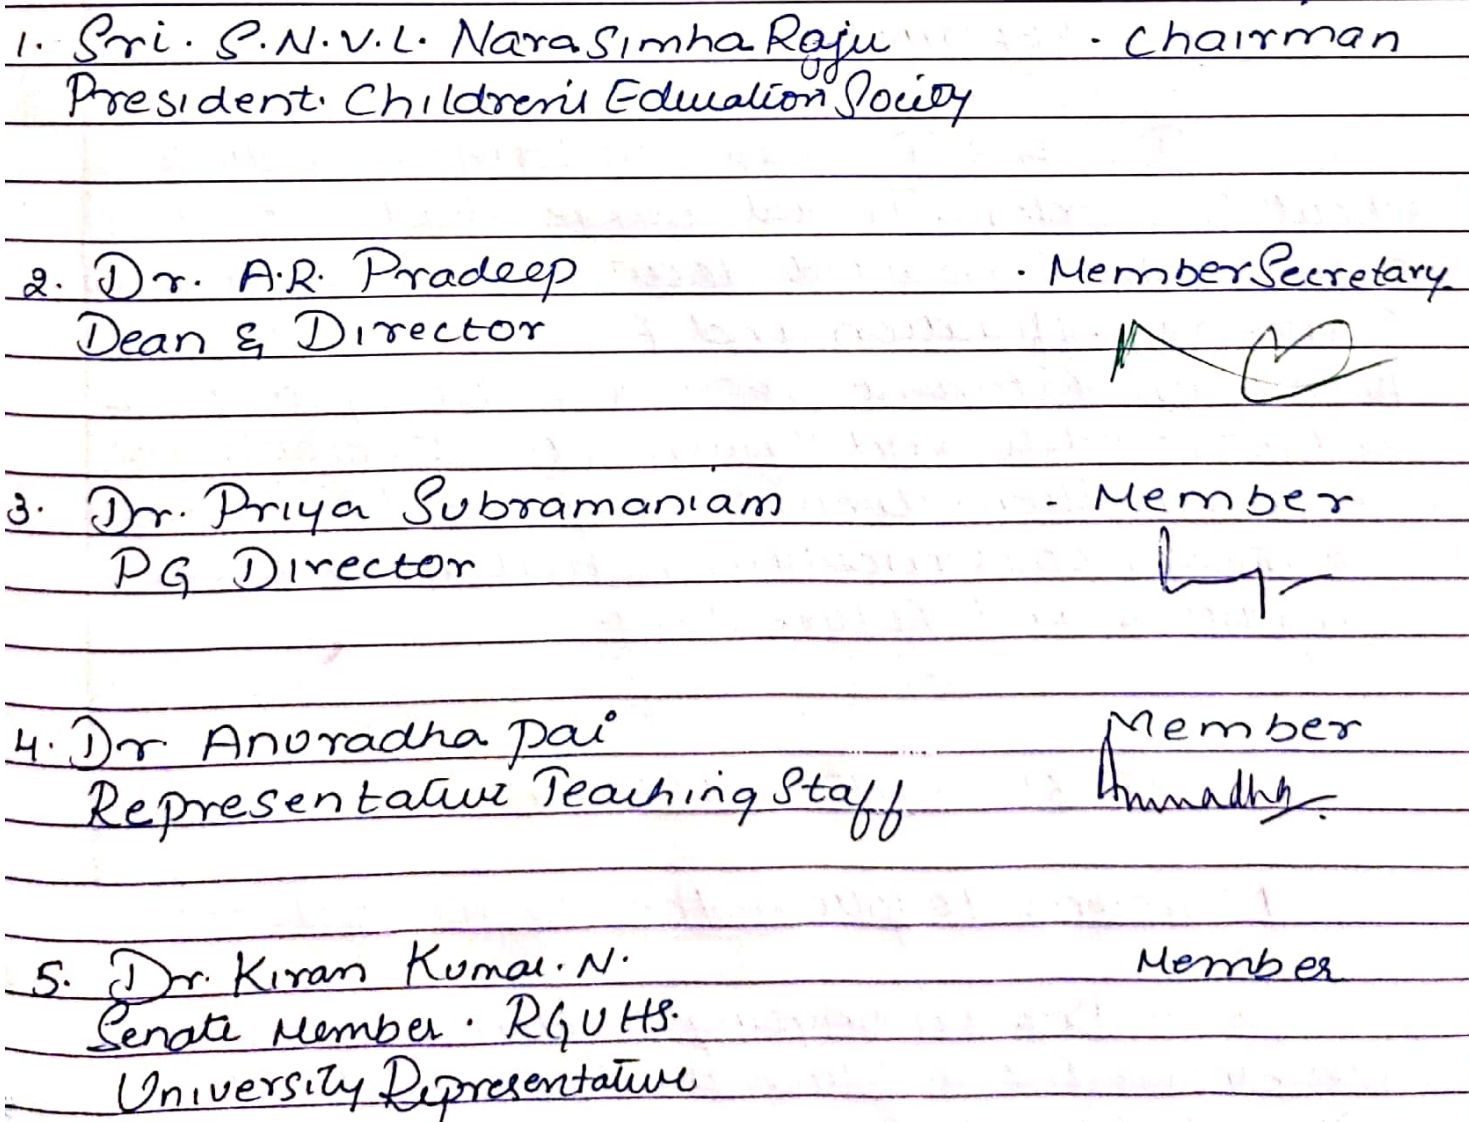 1. Sri. S.N.V.L. Narasimha Raju - Chairman
President. Children's Education Society
2. Dr. A.R. Pradeep - Member Secretary
Dean & Director
3. Dr. Priya Subramaniam - Member
PG Director
4. Dr Anuradha Pai Member
Representative Teaching Staff Anuradha
5. Dr. Kiran Kumar. N. Member
Senate Member. RGUHS.
University Representative